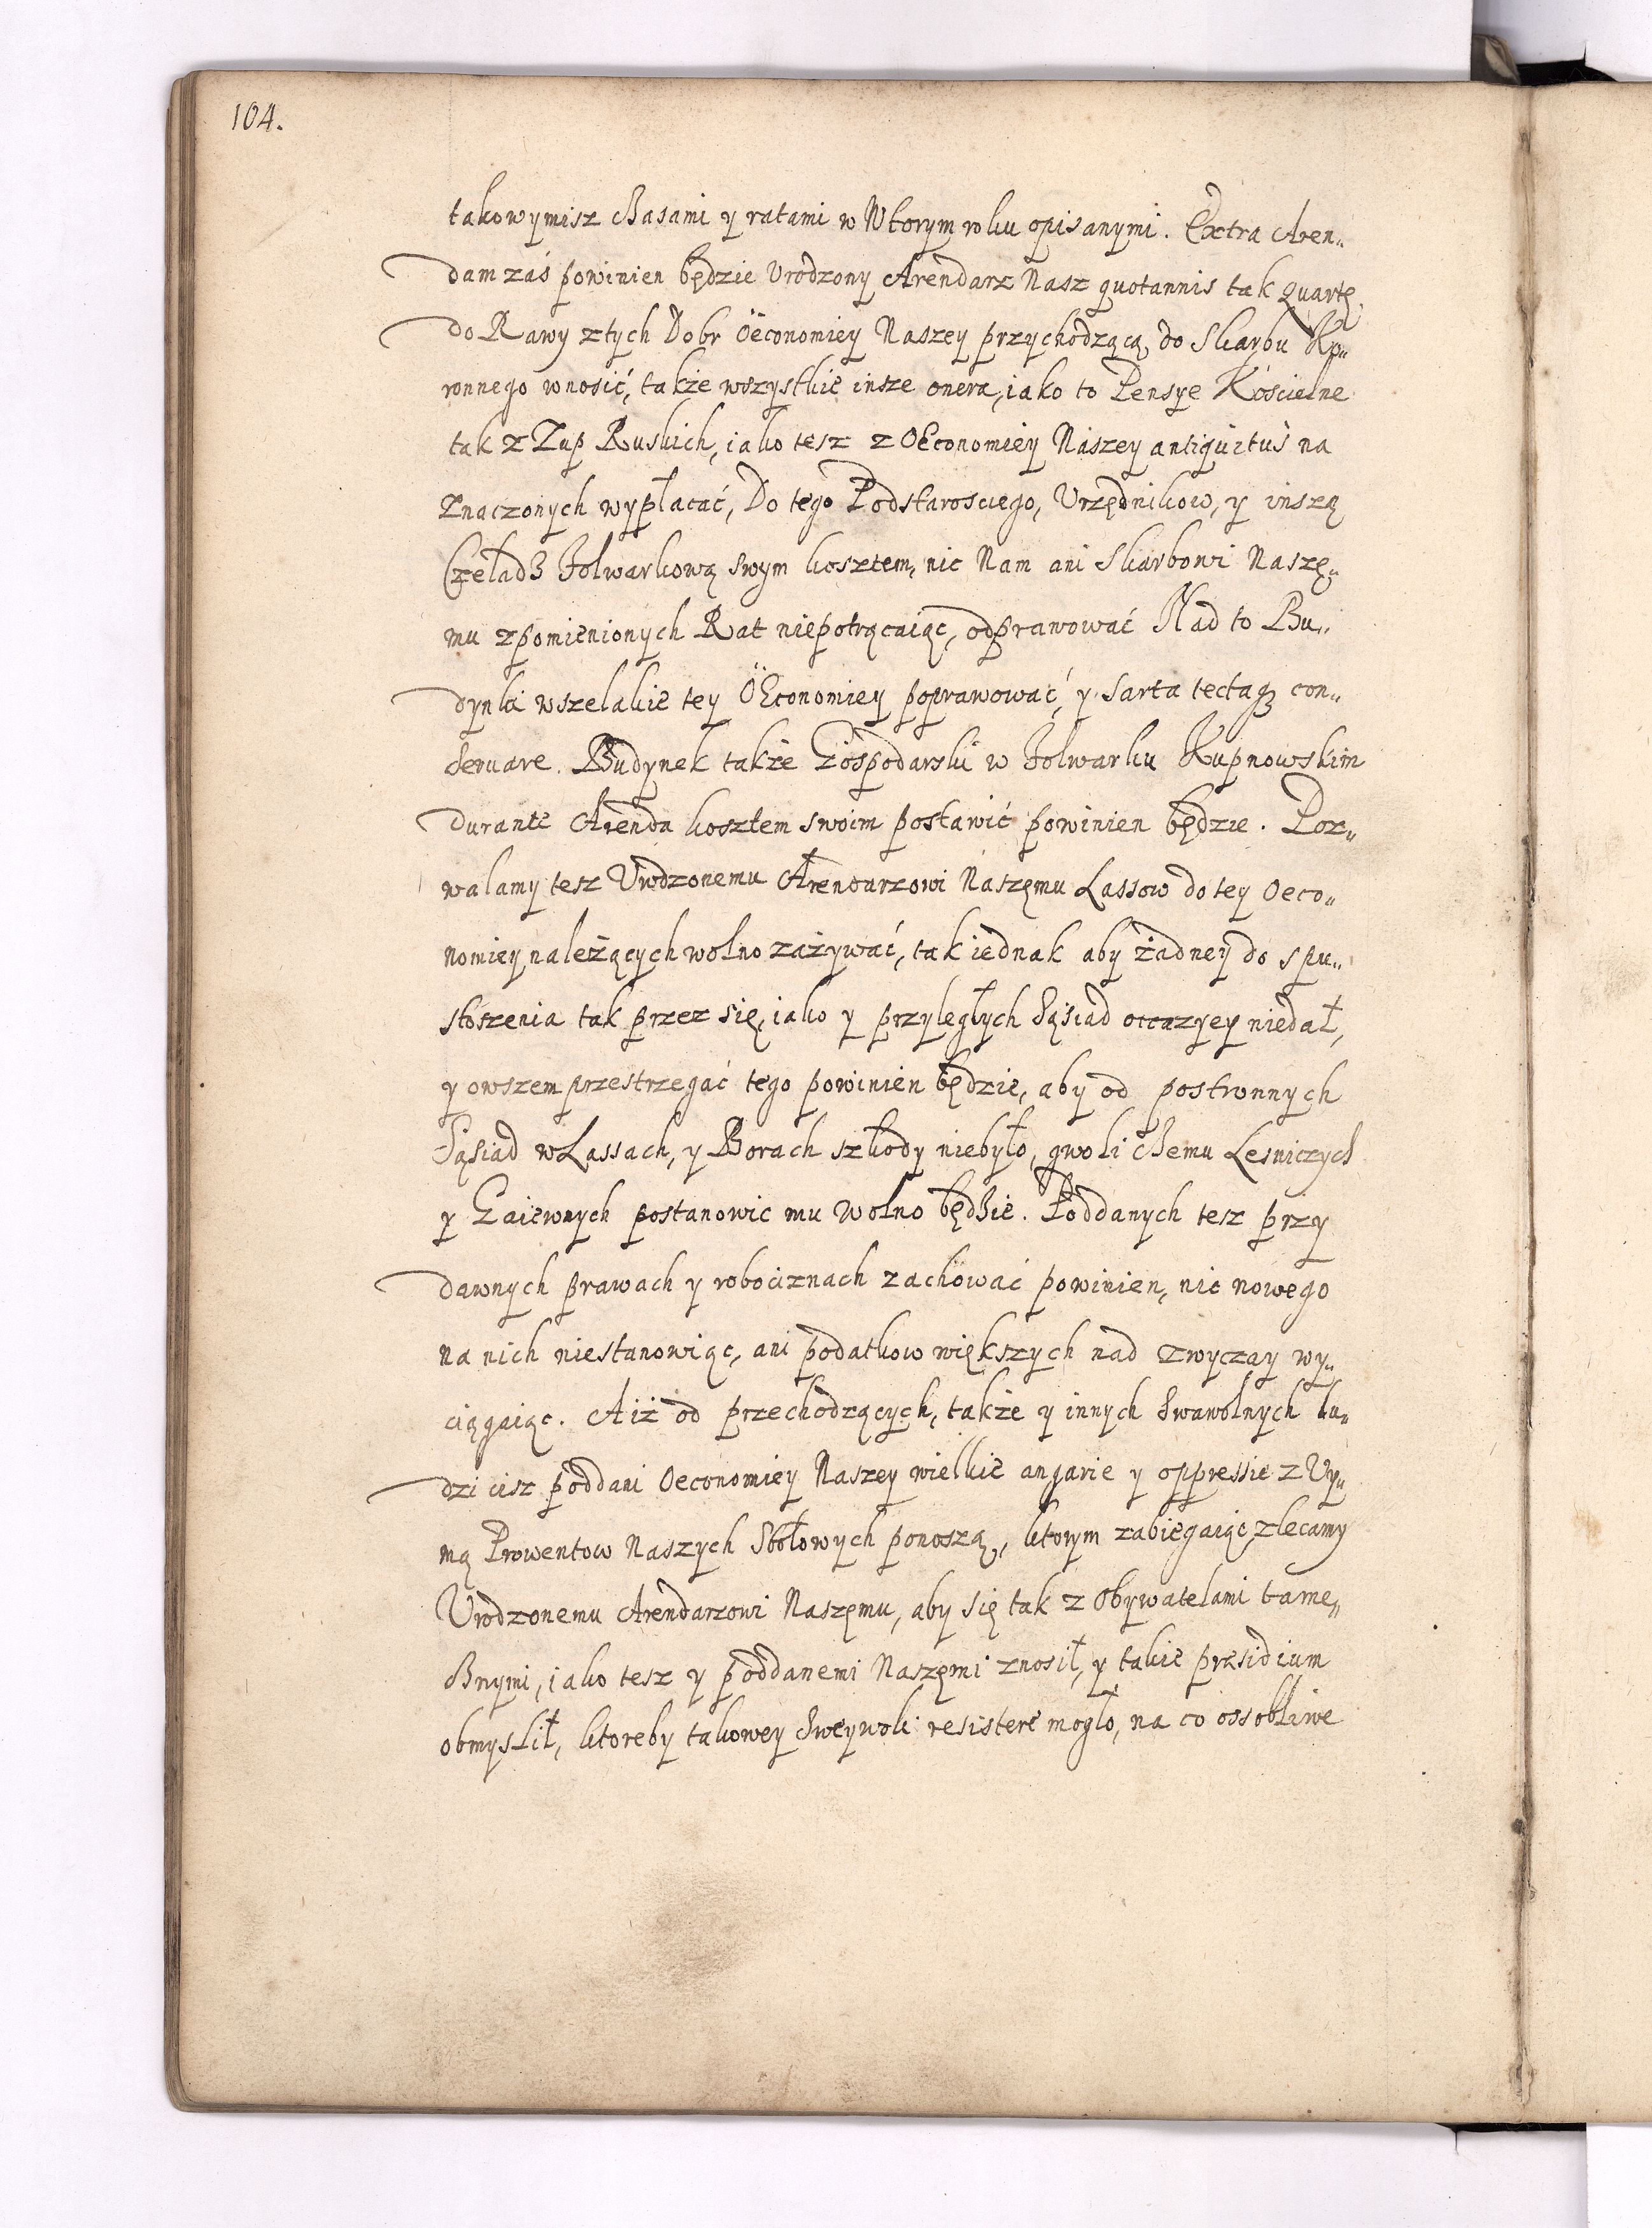 104.
takowymisz czasami y ratami w Wtorym roku opisanymi. Extra Aren„
dam zaś powinien będzie Urodzony Arendarz Nasz quotannis tak quartę
do Rawy z tych Dobr Oëconomiey Naszey przychodzącą do Skarbu Ko„
ronnego wnosić, także wszystkie insze onera, iako to Pensye Kościelne
tak z Zup Ruskich, iako tesz z OEconomiey Naszey antiquitus na
znaczonych wypłacać, Do tego Podstarosciego, Urzędnikow, y inszą
Czeladz Folwarkową swym kosztem, nic Nam ani Skarbowi Naszę„
mu z pomienionych Rat niepotrącaiąc, odprawować Nad to Bu„
dynki wszelakie tey OEconomiey poprawować, y sarta tectaq3 con„
seruare. Budynek także Gospodarski w Folwarku Kupnowskim
durante Arenda kosztem swoim postawić powinien będzie. Poz„
walamy tesz Urodzonemu Arendarzowi Naszęmu Lassow do tey Oeco„
nomiey należących wolno zażywać, tak iednak aby żadney do spu„
stoszenia tak przez się, iako y przyległych Sąsiad occazyey niedał,
y owszem przestrzegać tego powinien będzie, aby od postronnych
Sąsiad w Lassach, y Borach szkody niebyło, gwoli czemu Lesniczych
y Gaiewnych postanowic mu wolno będzie. Poddanych tesz przy
dawnych prawach y robociznach zachować powinien, nic nowego
na nich niestanowiąc, ani podatkow większych nad zwyczay wy„
ciągaiąc. A iż od przechodzących, także y innych swawolnych lu„
dzi cisz poddani Oeconomiey Naszey wielkie angarie y oppressie z Uy„
mą Prowentow Naszych Stołowych ponoszą, ktorym zabiegaiąc, zlecamy
Urodzonemu Arendarzowi Naszęmu, aby się tak z Obywatelami tame„
cznymi, iako tesz y poddanemi Naszęmi znosił, y takie præsidium
obmyslił, ktoreby takowey sweywoli resistere mogło, na co ossobliwe